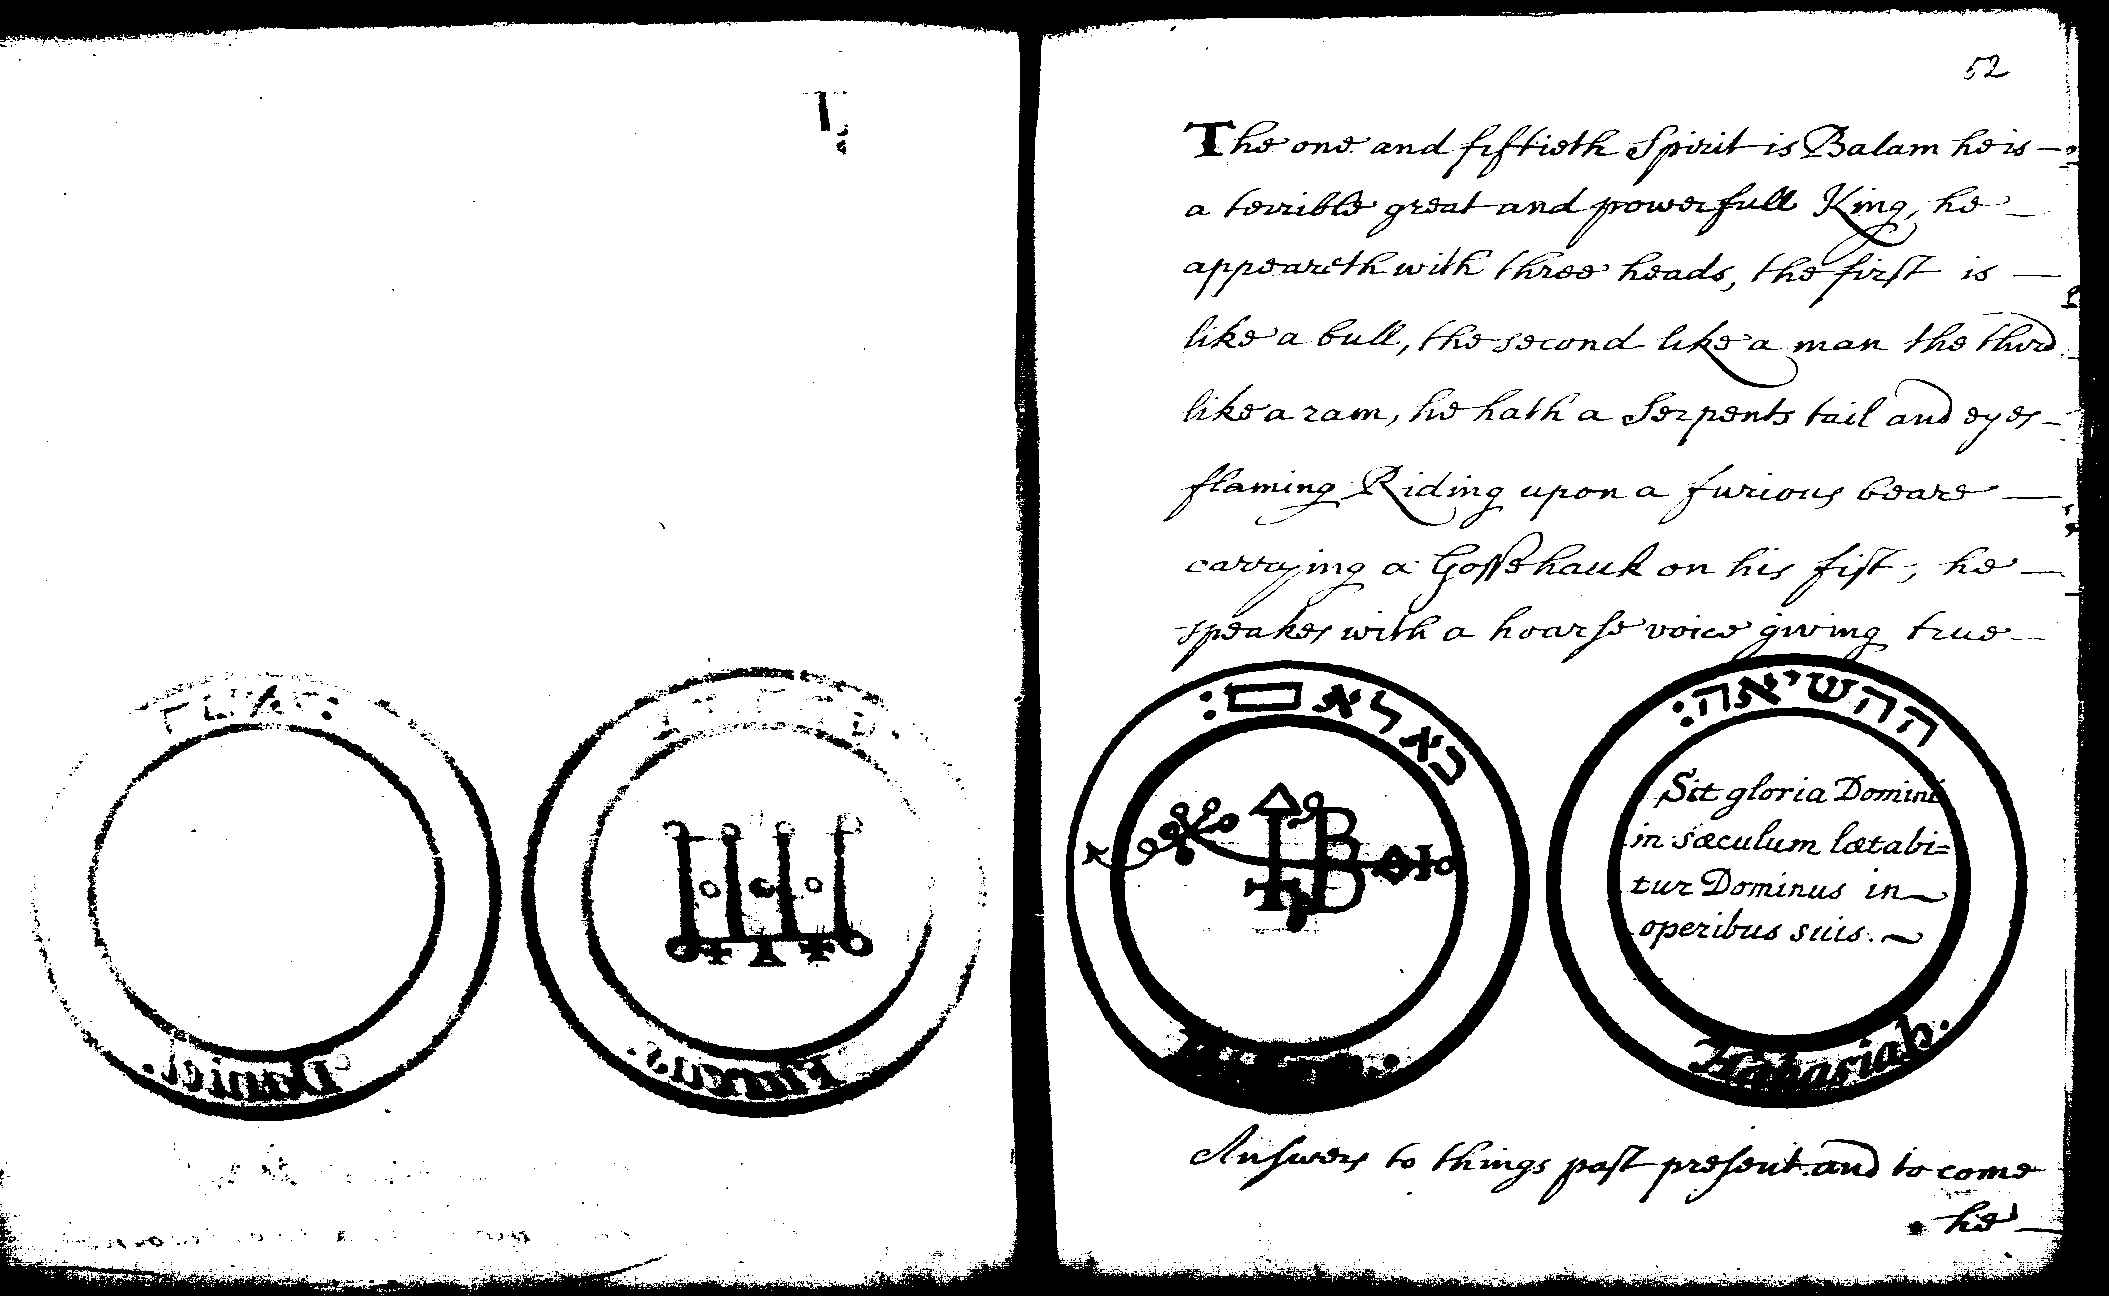 52
The one and fiftieth Spirit is Balam he is —
a terrible great and powerfull King, he —
appeareth with three heads, the first is —
like a bull, the second like a man the third
like a ram, he hath a Serpents tail and eyes —
flaming Riding upon a furious beare —
carrying a Gossehauk on his fist, he —
speakes with a hoarse voice giving true —
Daniel.
באלאם:
ההשיאה:
Sit gloria Domini
in sæculum lætabi=
tur Dominus in ~
operibus suis. ~
Hahasiah.
Answers to things past present and to come
he —